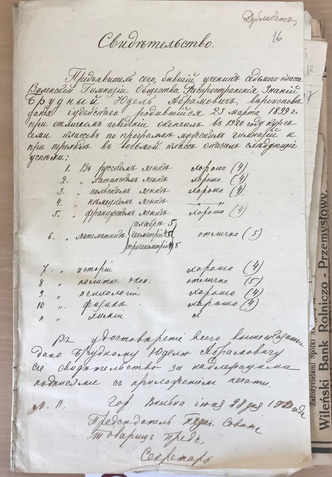 Дубликатъ.
16
Свидѣтельство.
Предъявитель сего, бывшій ученикъ седьмого класса
Виленской Гимназіи Общества Распространенія Знаній
Брудный Юдель Абрамовичъ, вѣроисповѣ-
данія іудейскаго родившійся 23 марта 1899 г.
при отличномъ поведеніи окончилъ въ 1920 году курсъ
семи классовъ по программѣ мужскихъ гимназій и
при переходѣ въ восьмой классъ оказалъ слѣдующіе
успѣхи:
1. Въ русскомъ языкѣ хорошо (4)
2. " латинскомъ языкѣ хорошо (4)
3. " польскомъ языкѣ хорошо (4)
4. " нѣмецкомъ языкѣ
5. " французскомъ языкѣ хорошо (4)
6. " математикѣ { алгебрѣ 5 геометріи 5 тригонометріи 5 } отлично (5)
7 " исторіи хорошо (4)
8 " политич. экон. отлично (5)
9 " психологіи хорошо (4)
10 " физикѣ хорошо (4)
11 " химіи
Въ удостовѣреніе всего вышеизложен-
дано Брудному Юделю Абрамовичу
сіе свидѣтельство за надлежащими
подписями съ приложеніемъ печати.
М. П. Гор. Вильна іюня 28 дня 1920 года
Предсѣдатель Педаг. Совѣта
Товарищъ Предс.
Секретарь
Wileński Bank Rolniczo-Przemysłowy